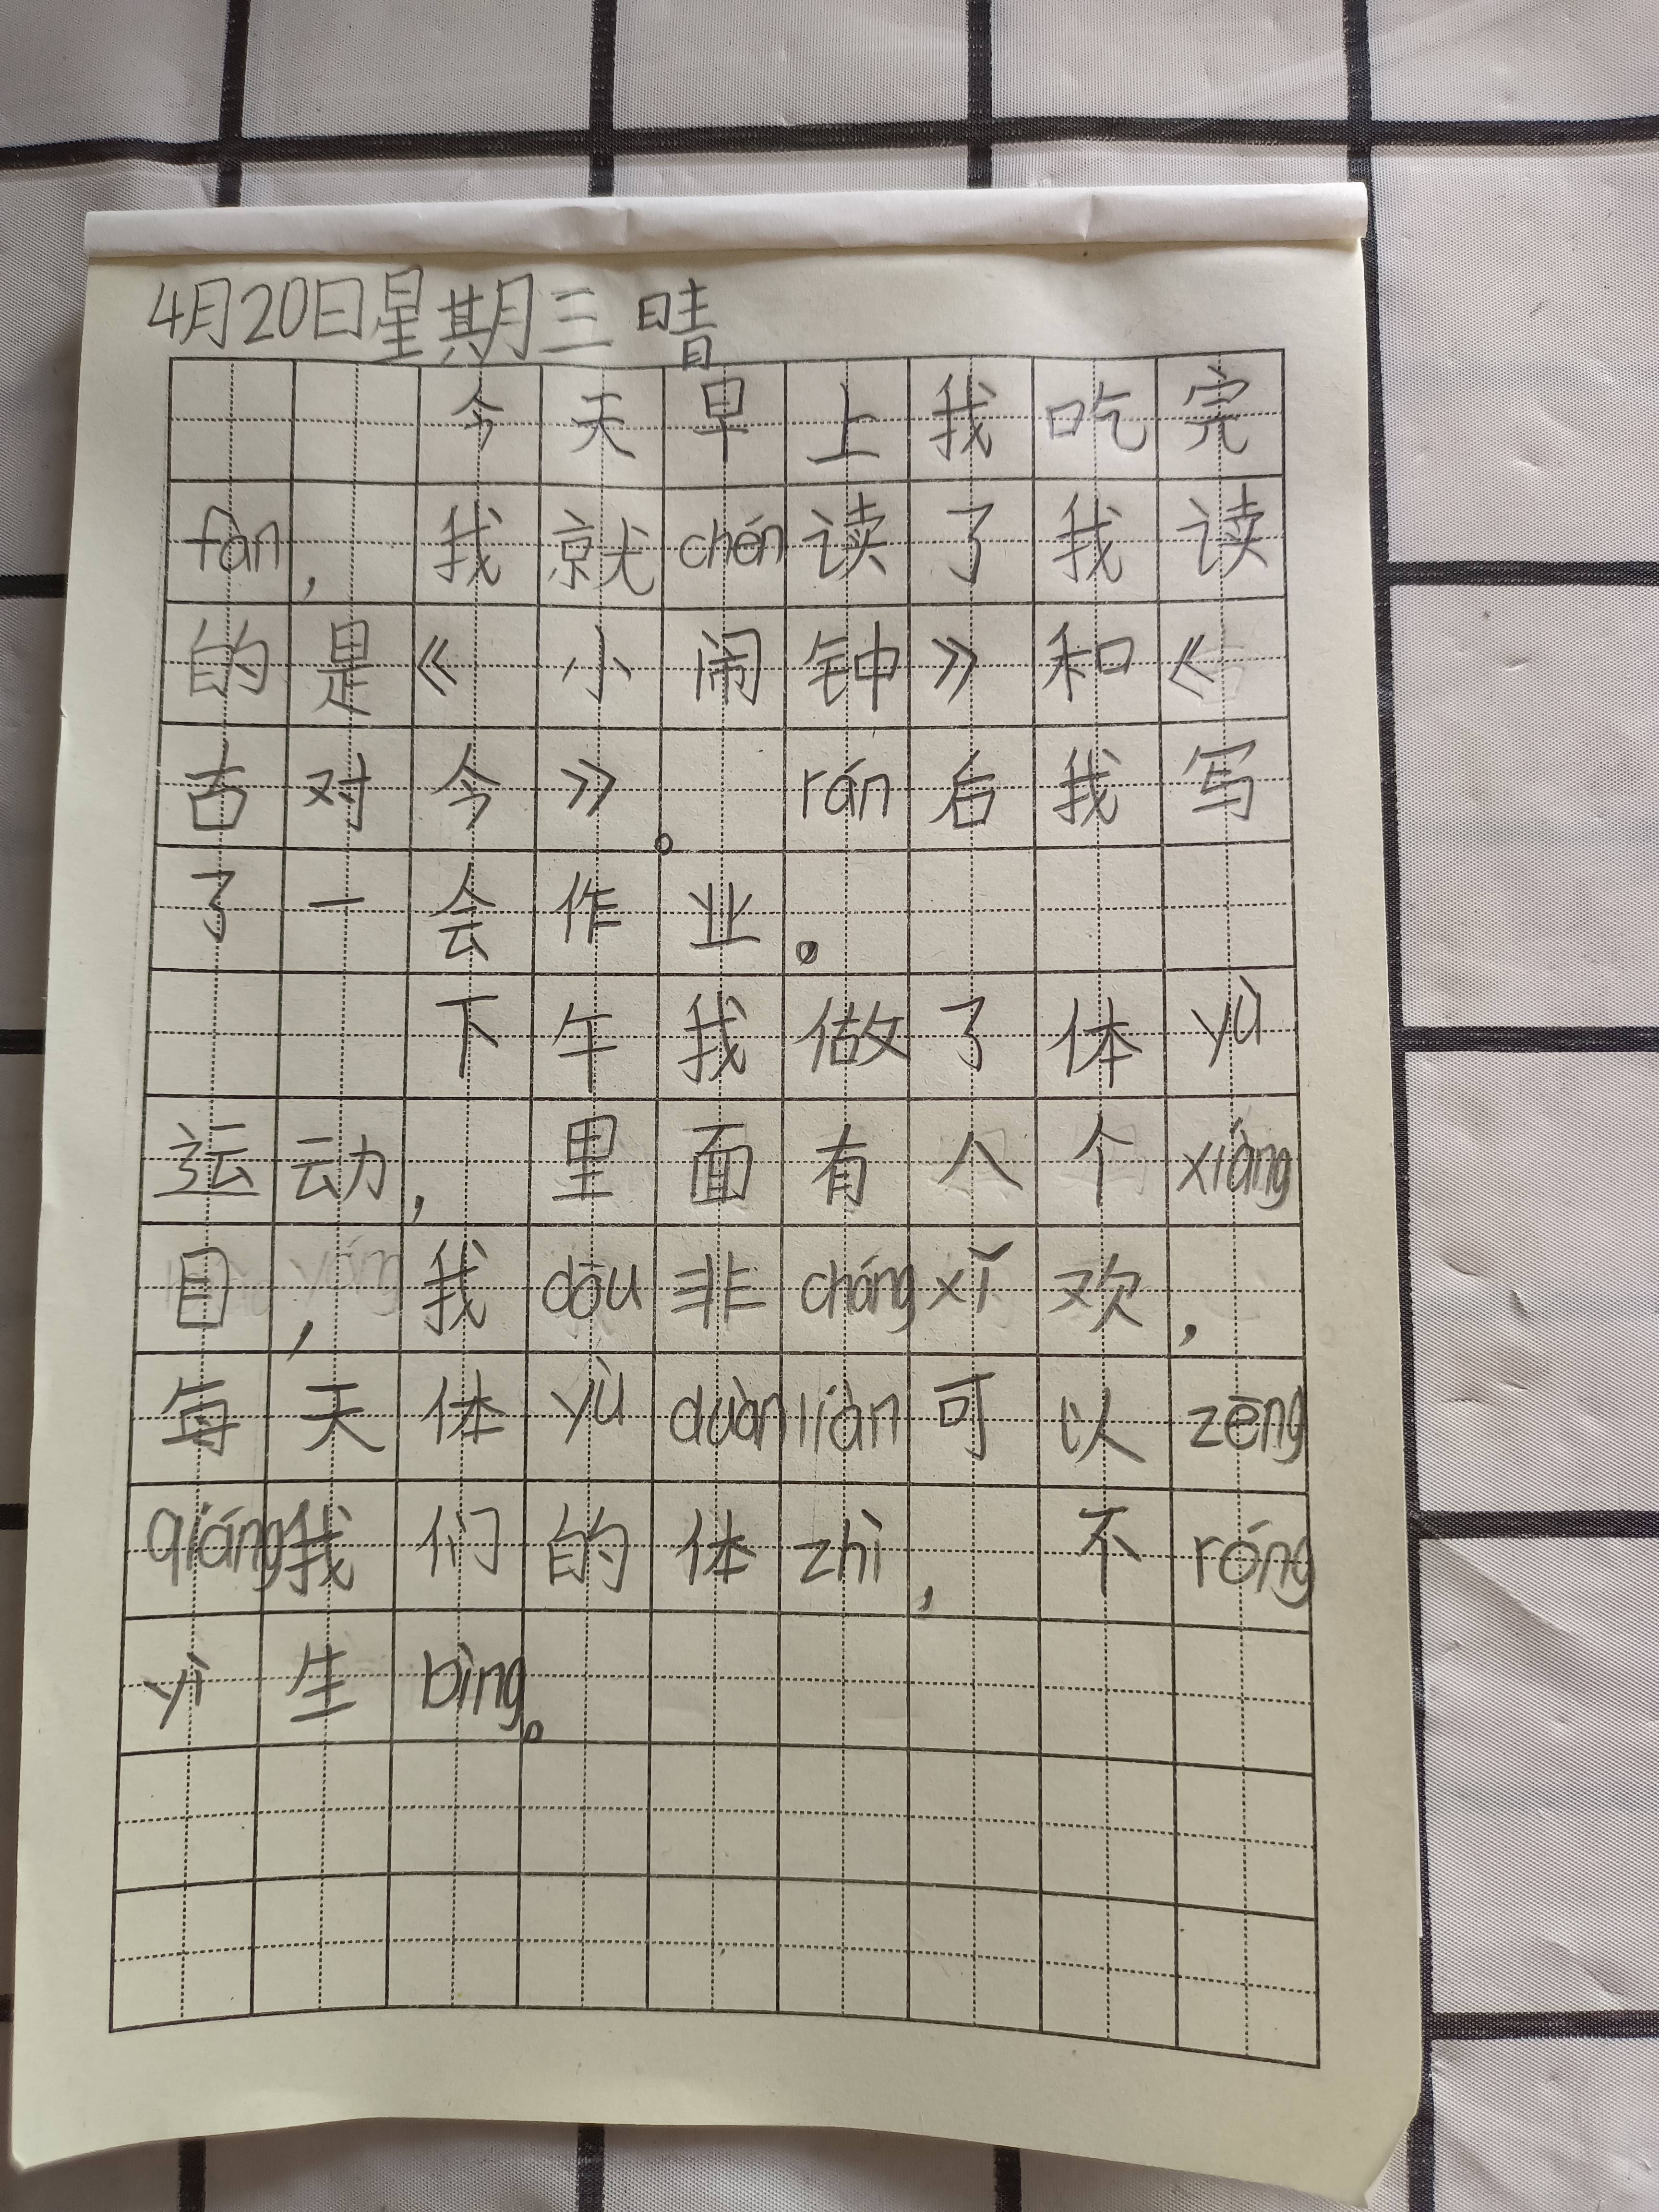 4月20日星期三 晴
今天早上我吃完
fàn，我就chén读了我读
的是《小闹钟》和《
古对今》。rán后我写
了一会作业。
下午我做了体yù
运动，里面有八个xiàng
目，我dōu非cháng xǐ欢，
每天体yù duàn liàn可以zēng
qiáng我们的体zhì，不róng
yì生bìng。